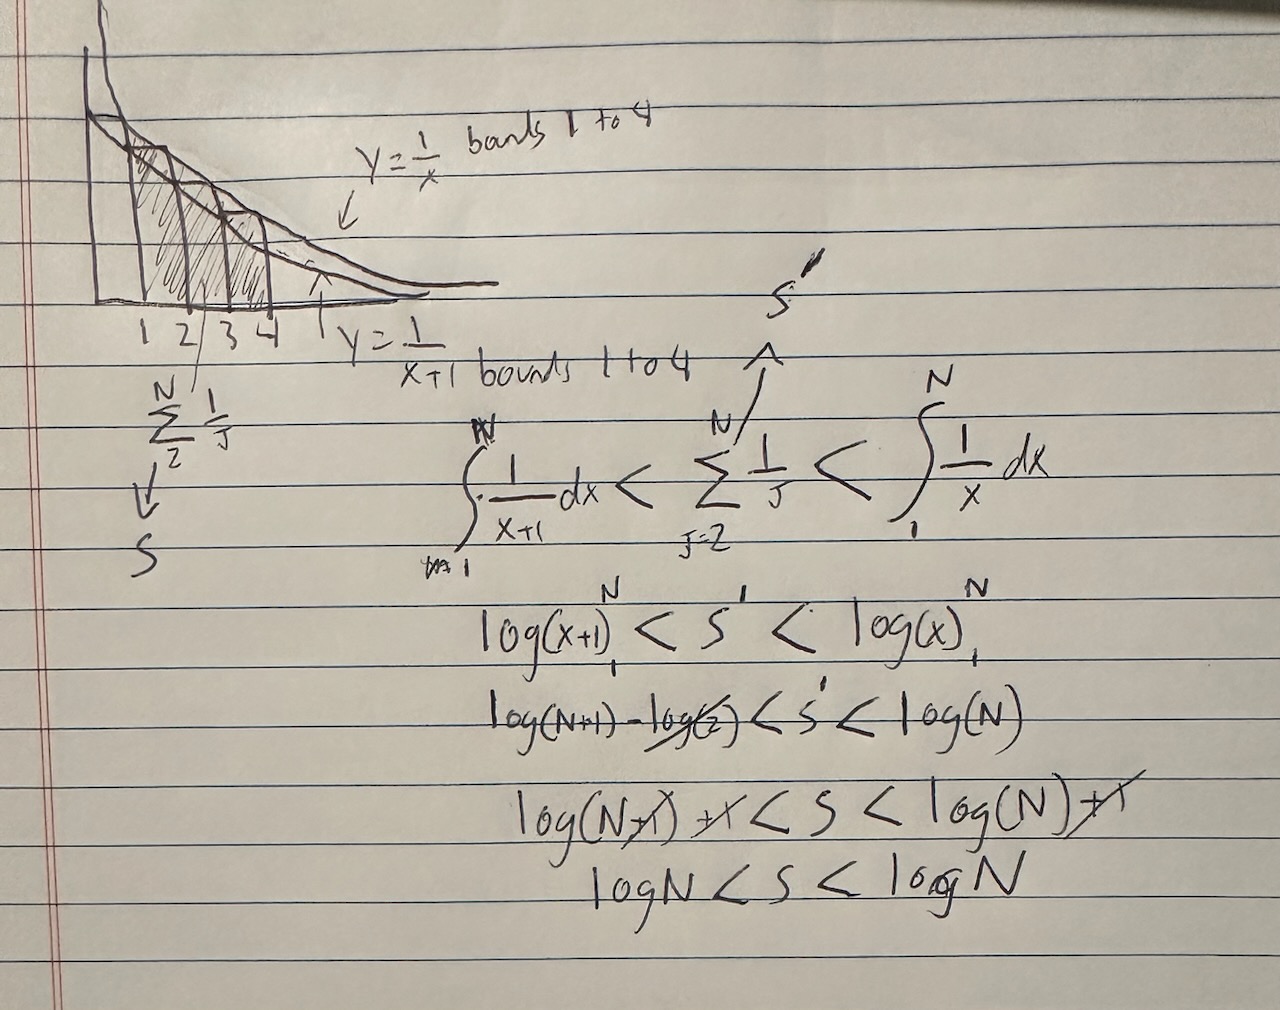 y = 1/x bands 1 to 4
1 2 3 4
y = 1/(x+1) bounds 1 to 4
∑_2^N 1/J
↓
S
S'
∫_1^N 1/(x+1) dx < ∑_{J=2}^N 1/J < ∫_1^N 1/x dx
log(x+1)|_1^N < S' < log(x)|_1^N
log(N+1) - log(2) < S' < log(N)
log(N+1) + 1 < S < log(N) + 1
logN < S < log N